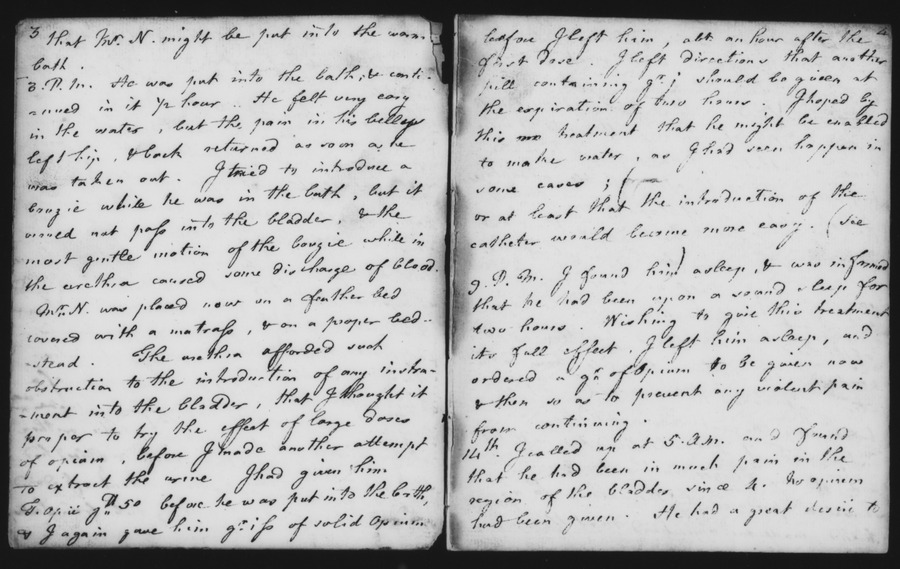 3
that Mr. N. might be put into the warm
bath.
3. P.M. He was put into the bath, & conti-
-nued in it 1/2 hour. He felt very easy
in the water, but the pain in his belly,
left hip, & back returned as soon as he
was taken out. I tried to introduce a
bougie while he was in the bath, but it
would not pass into the bladder, & the
most gentle motion of the bougie while in
the urethra caused some discharge of blood.
Mr. N. was placed now on a feather bed
covered with a matrass, & on a proper bed-
-stead. The urethra afforded such
obstruction to the introduction of any instru-
-ment into the bladder, that I thought it
proper to try the effect of large doses
of opium, before I made another attempt
to extract the urine. I had given him
T. Opii gtt 50 before he was put into the bath,
& I again gave him gr. iss of solid Opium
4
before I left him, abt. an hour after the
first dose. I left directions that another
pill containing gr. j should be given at
the expiration of two hours. I hoped by
this treatment that he might be enabled
to make water, as I had seen happen in
some cases;
or at least that the introduction of the
catheter would become more easy. (see
9. P. M. I found him) asleep, & was informed
that he had been upon a sound sleep for
two hours. Wishing to give this treatment
its full effect, I left him asleep, and
ordered a gr. of Opium to be given now
& then so as to prevent any violent pain
from continuing.
14th. I called up at 5. A.M. and found
that he had been in much pain in the
region of the bladder since No opium
had been given. He had a great desire to